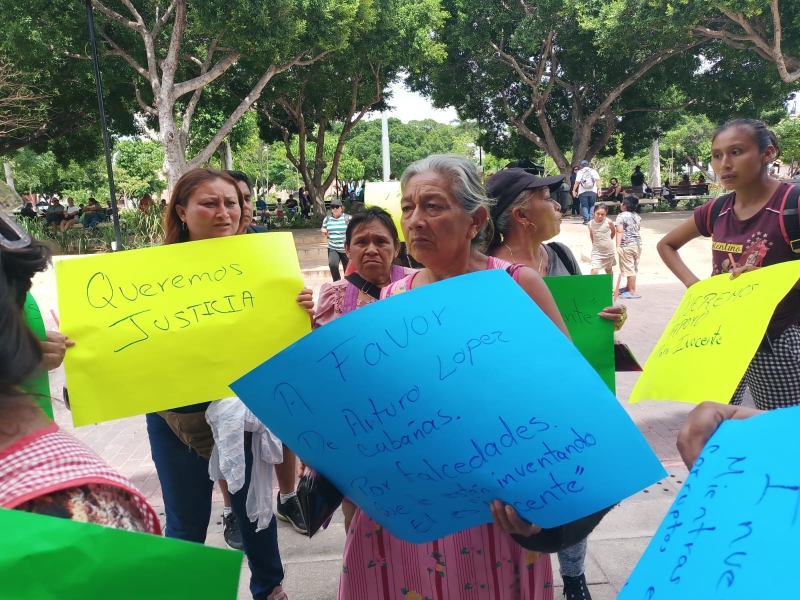 Queremos
JUSTICIA
A Favor
De Arturo Lopez
Cabañas.
Por falcedades.
Que le están inventando
El es inocente"
QUEREMOS
APOYO
Inocente
Inve
Mientras